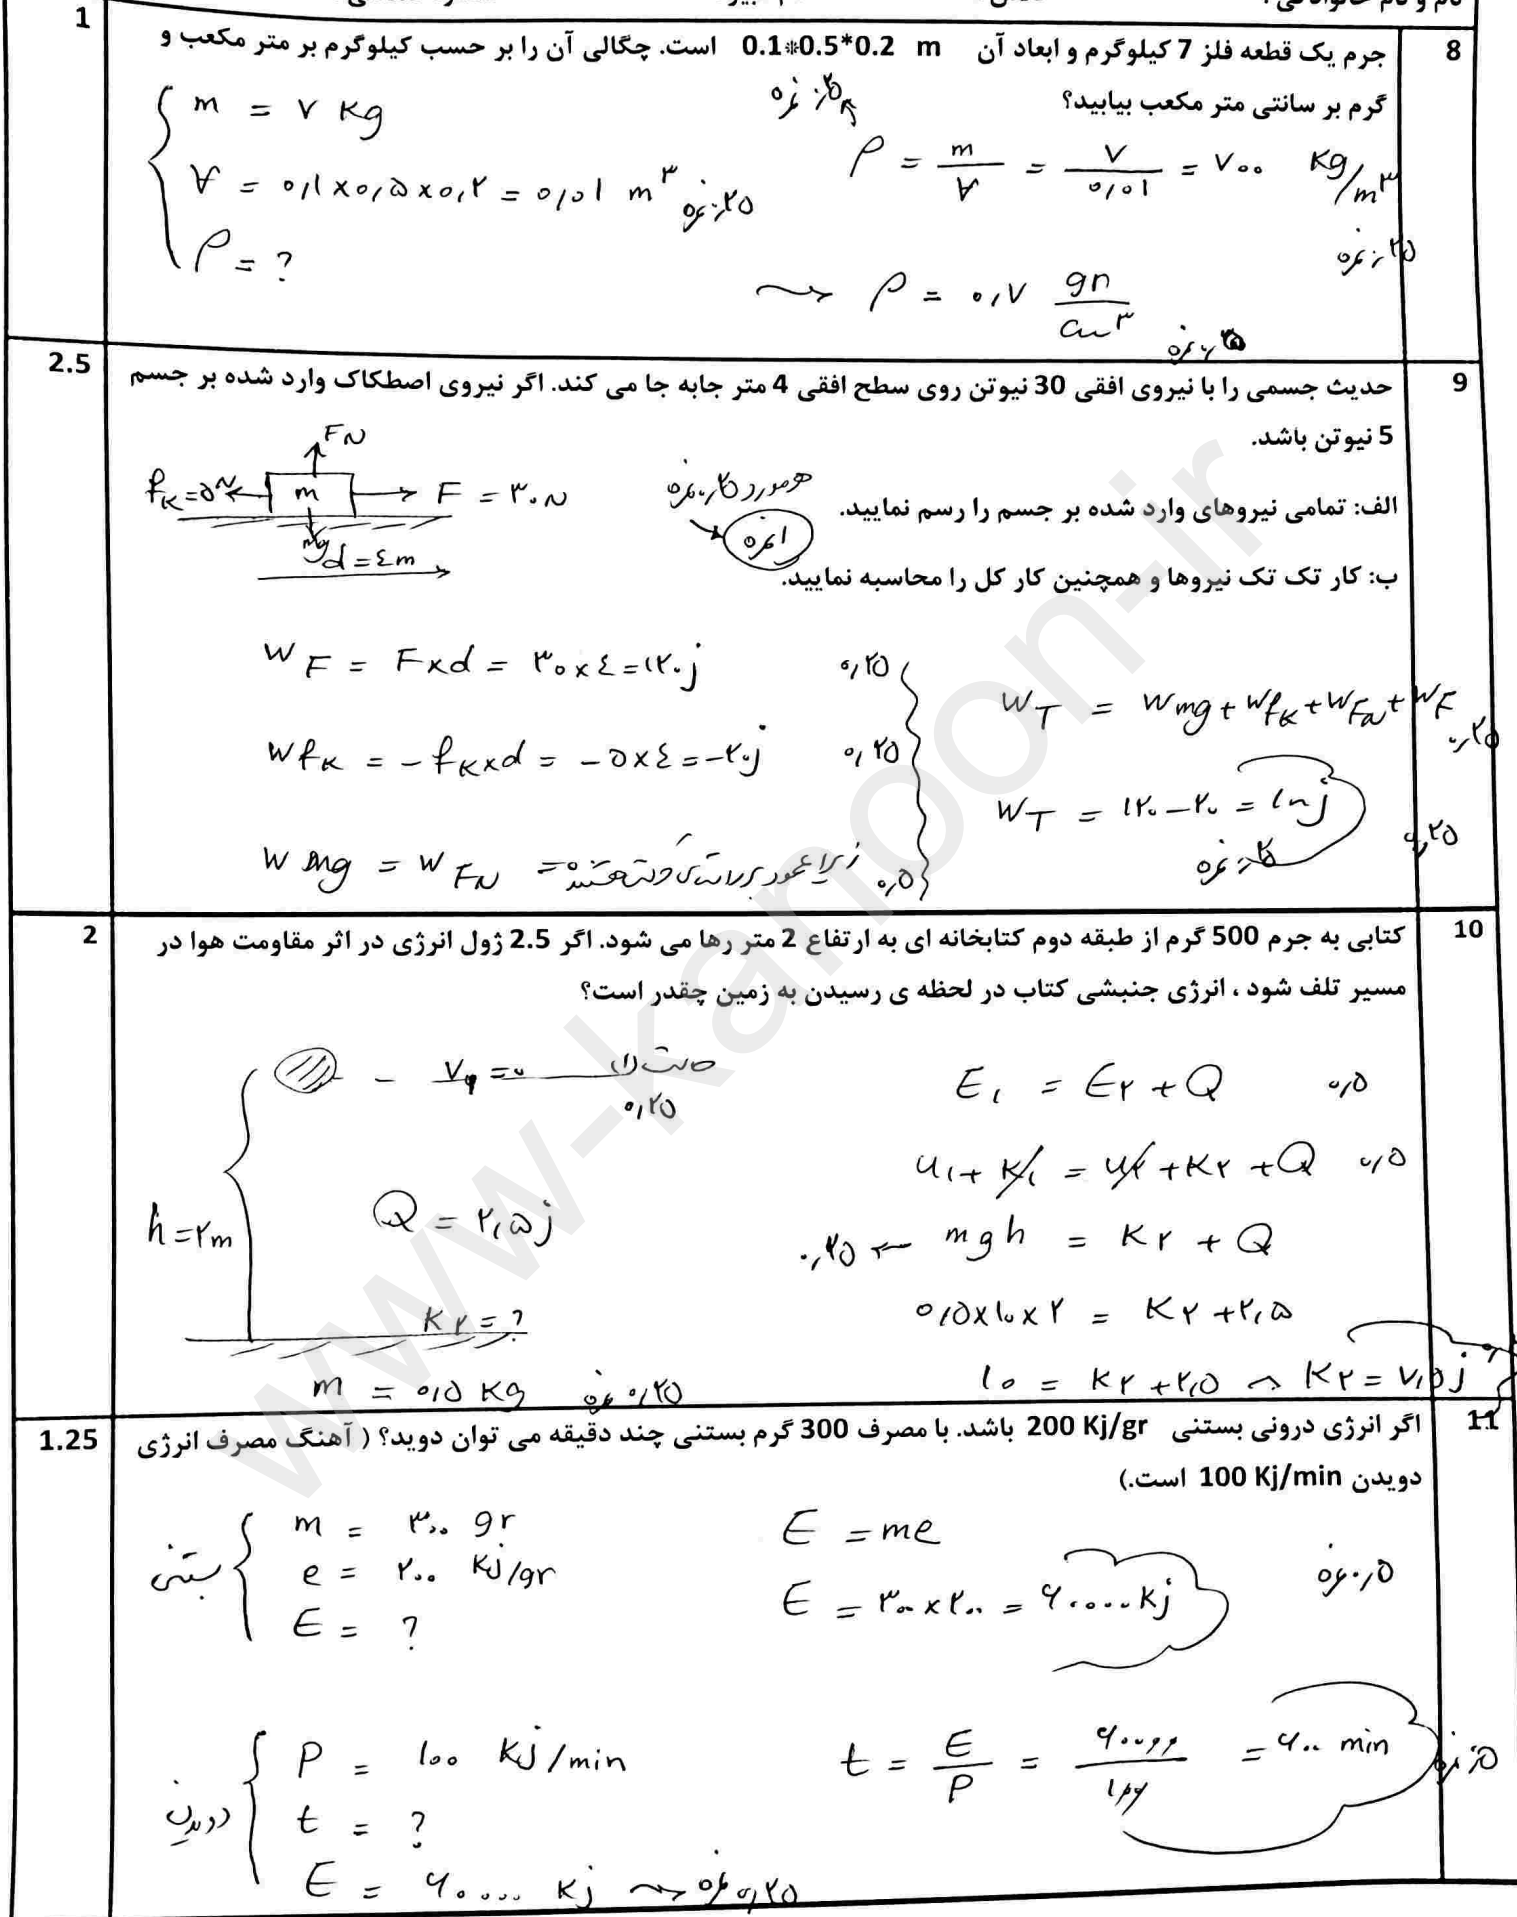 1
8
جرم یک قطعه فلز 7 کیلوگرم و ابعاد آن 0.1*0.5*0.2 m است. چگالی آن را بر حسب کیلوگرم بر متر مکعب و
گرم بر سانتی متر مکعب بیابید؟
m = ۷ Kg
V = ۰٫۱ × ۰٫۵ × ۰٫۲ = ۰٫۰۱ m³ ۰٫۲۵ نمره
ρ = ?
ρ = m/V = ۷/۰٫۰۱ = ۷۰۰ Kg/m³
۰٫۲۵ نمره
ρ = ۰٫۷ gr/cm³
2.5
9
حدیث جسمی را با نیروی افقی 30 نیوتن روی سطح افقی 4 متر جابه جا می کند. اگر نیروی اصطکاک وارد شده بر جسم
5 نیوتن باشد.
FN
fK = ۵N m F = ۳۰ N
mg
d = ٤m
هر مورد ۰٫۲۵ نمره
۱ نمره
الف: تمامی نیروهای وارد شده بر جسم را رسم نمایید.
ب: کار تک تک نیروها و همچنین کار کل را محاسبه نمایید.
W F = F×d = ۳۰ × ٤ = ۱۲۰ j ۰٫۲۵
W fK = - fK × d = - ۵ × ٤ = -۲۰ j ۰٫۲۵
W mg = W FN = ۰ زیرا عمود بر راستای حرکت هستند ۰٫۵
WT = Wmg + WfK + WFN + WF ۰٫۲۵
WT = ۱۲۰ - ۲۰ = ۱۰۰ j ۰٫۲۵
2
10
کتابی به جرم 500 گرم از طبقه دوم کتابخانه ای به ارتفاع 2 متر رها می شود. اگر 2.5 ژول انرژی در اثر مقاومت هوا در
مسیر تلف شود ، انرژی جنبشی کتاب در لحظه ی رسیدن به زمین چقدر است؟
V۱ = ۰ حالت (۱)
۰٫۲۵
h = ۲m
Q = ۲٫۵ j
K۲ = ?
m = ۰٫۵ Kg ۰٫۲۵ نمره
E۱ = E۲ + Q ۰٫۵
u۱ + K۱ = u۲ + K۲ + Q ۰٫۵
mgh = K۲ + Q ۰٫۲۵
۰٫۵ × ۱۰ × ۲ = K۲ + ۲٫۵
۱۰ = K۲ + ۲٫۵ K۲ = ۷٫۵ j
1.25
11
اگر انرژی درونی بستنی 200 Kj/gr باشد. با مصرف 300 گرم بستنی چند دقیقه می توان دوید؟ ( آهنگ مصرف انرژی
دویدن 100 Kj/min است.)
بستنی
m = ۳۰۰ gr
e = ۲۰۰ Kj/gr
E = ?
E = me
E = ۳۰۰ × ۲۰۰ = ۶۰۰۰۰ Kj
۰٫۵ نمره
دویدن
P = ۱۰۰ Kj/min
t = ?
E = ۶۰۰۰۰ Kj ۰٫۲۵ نمره
t = E/P = ۶۰۰۰۰/۱۰۰ = ۶۰۰ min
۰٫۵ نمره
www-kanoon-ir